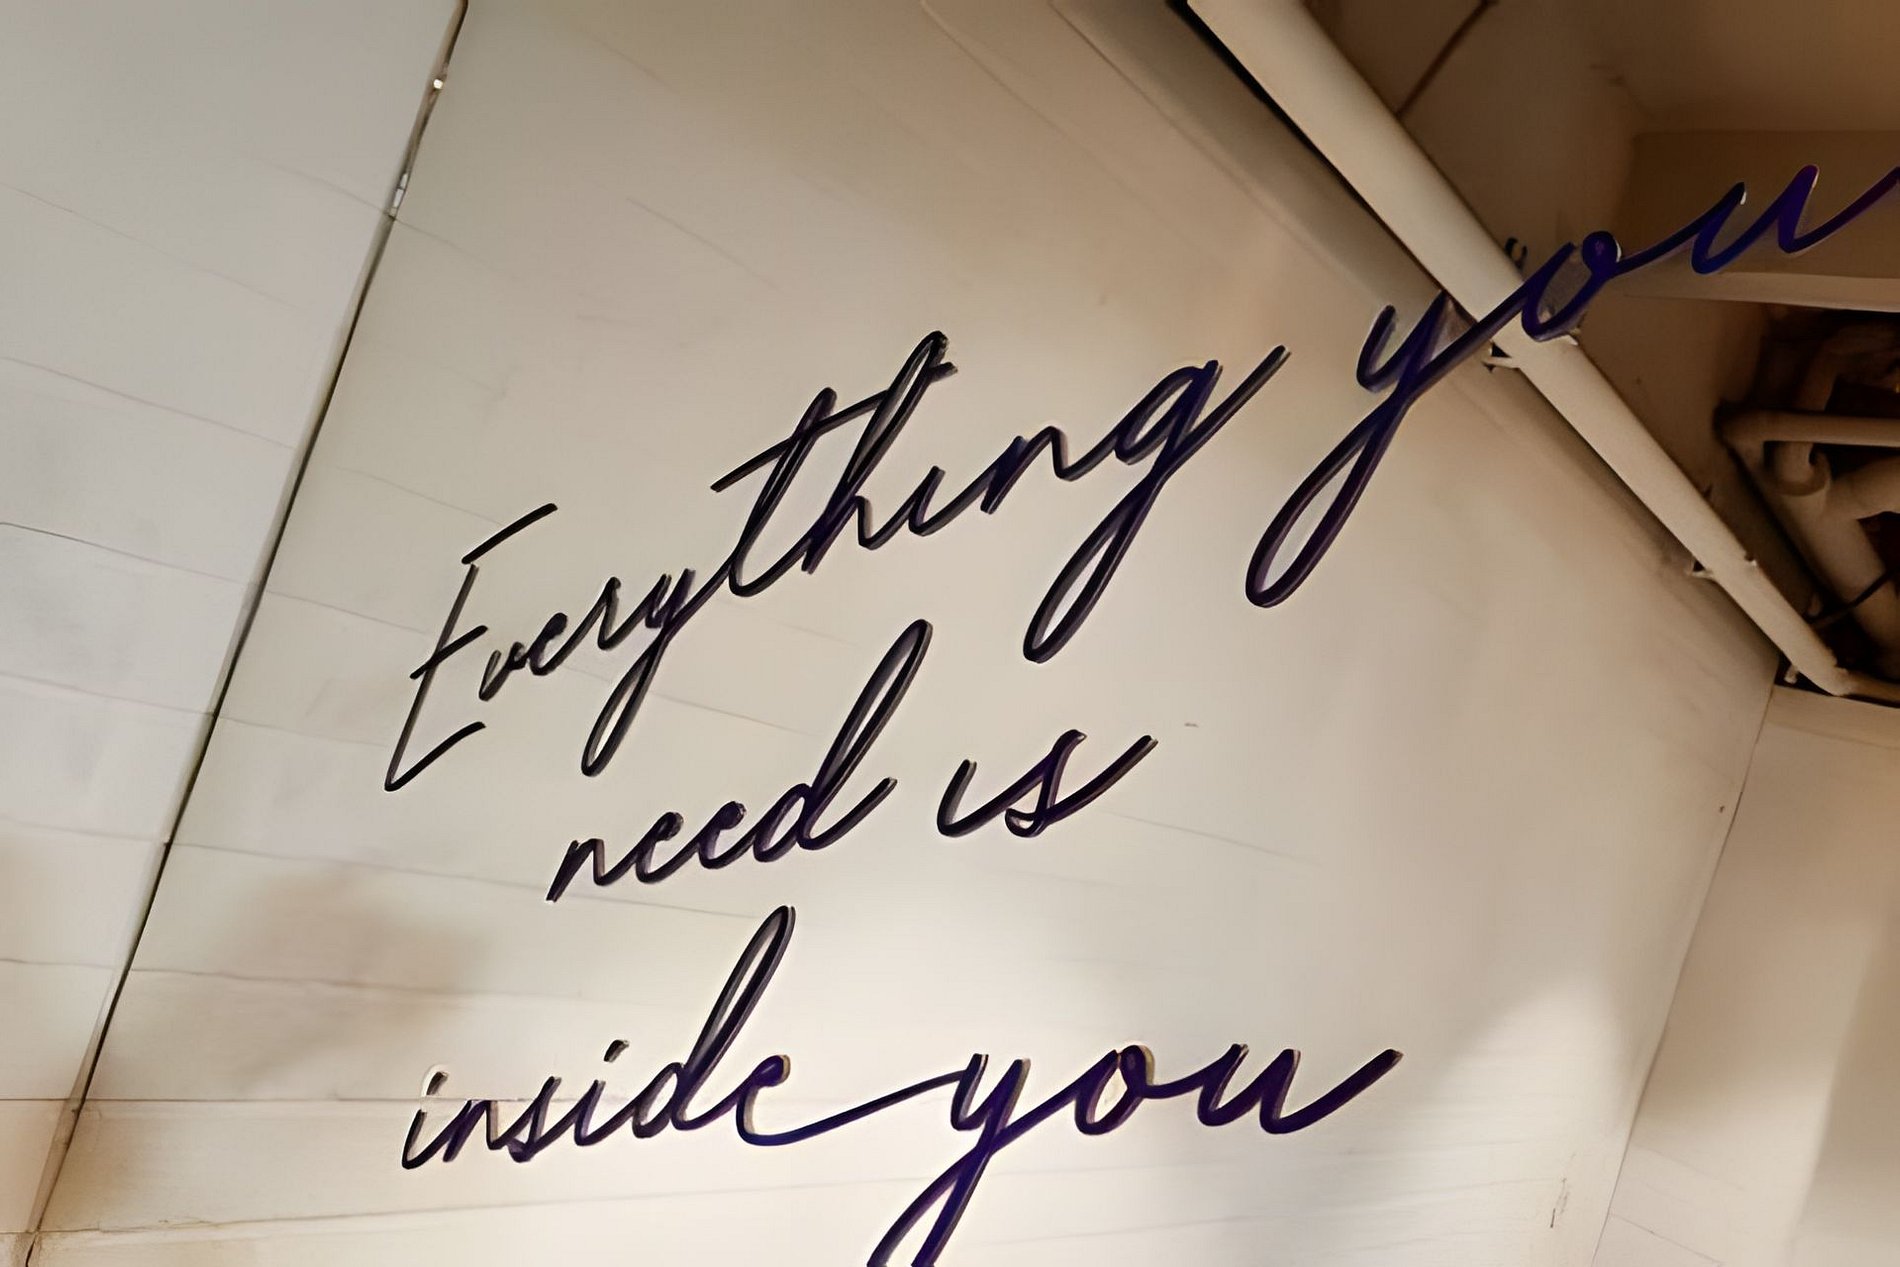 Everything you
need is
inside you